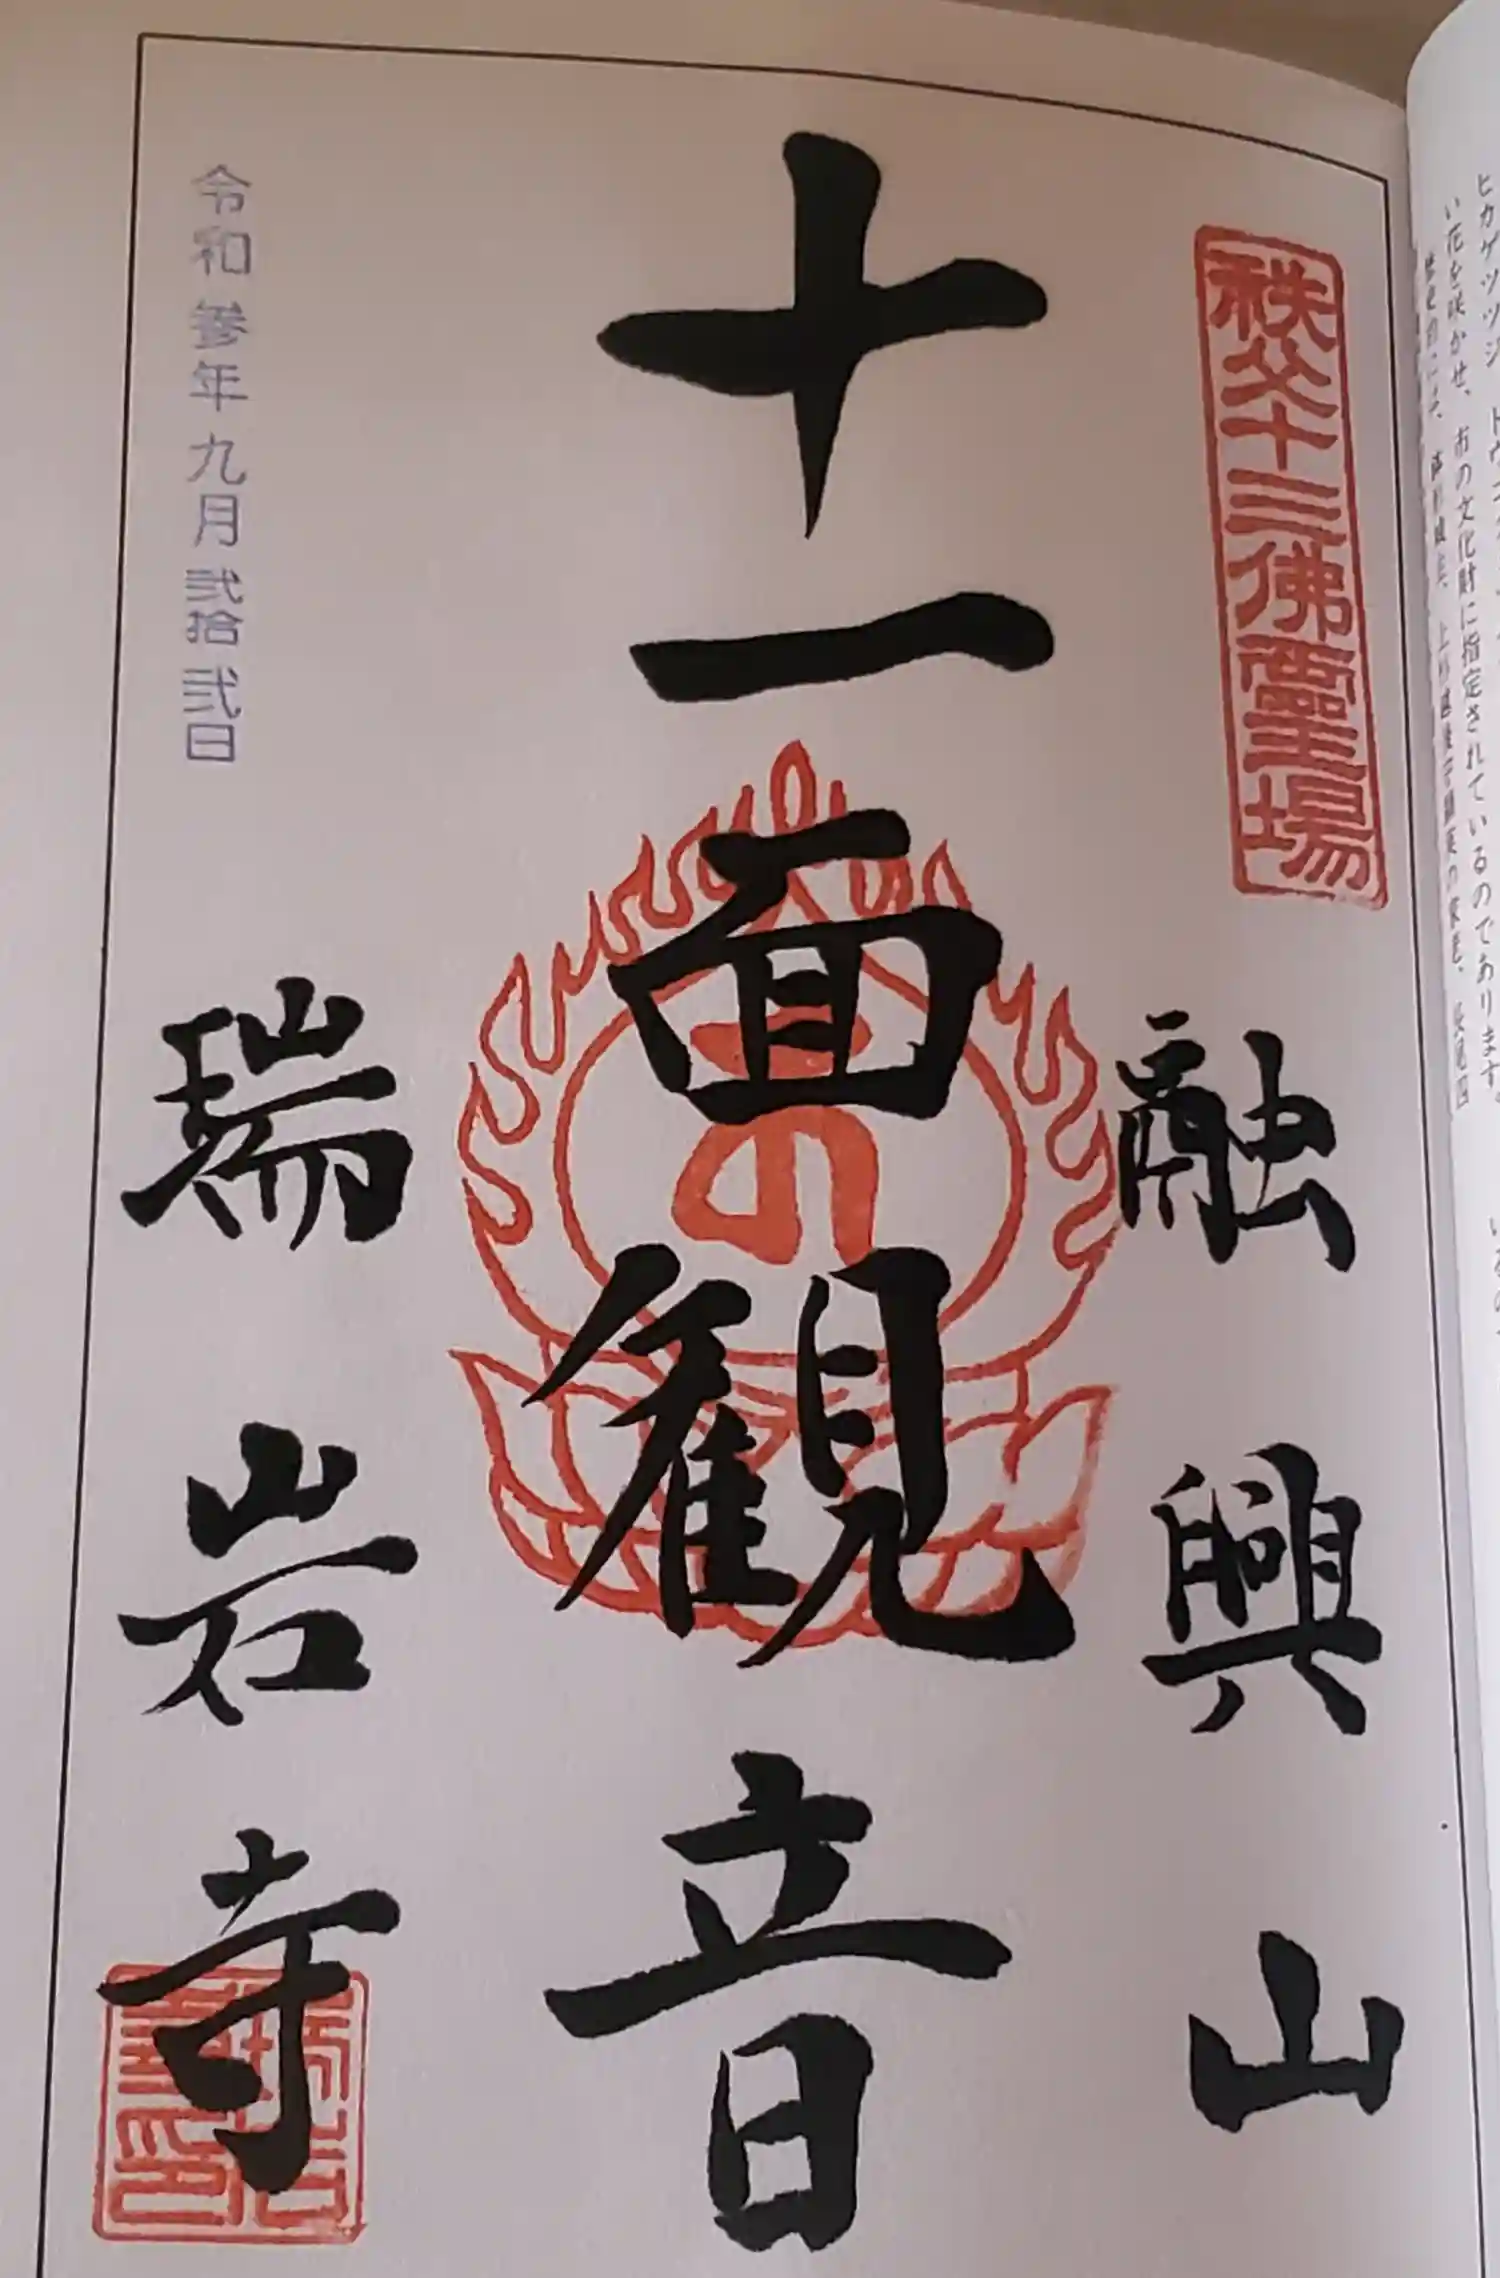 ヒカゲツツジ
い花を咲かせ、市の文化財に指定されているのであります。
秩父十三佛霊場
融興山
十一面観音
瑞岩寺
令和参年九月弐拾弐日